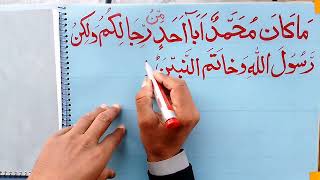 مَا كَانَ مُحَمَّدٌ اَبَآ اَحَدٍ مِّنْ رِّجَالِكُمْ وَلٰكِنْ
رَّسُوْلَ اللهِ وَخَاتَمَ النَّبِيّٖنَ